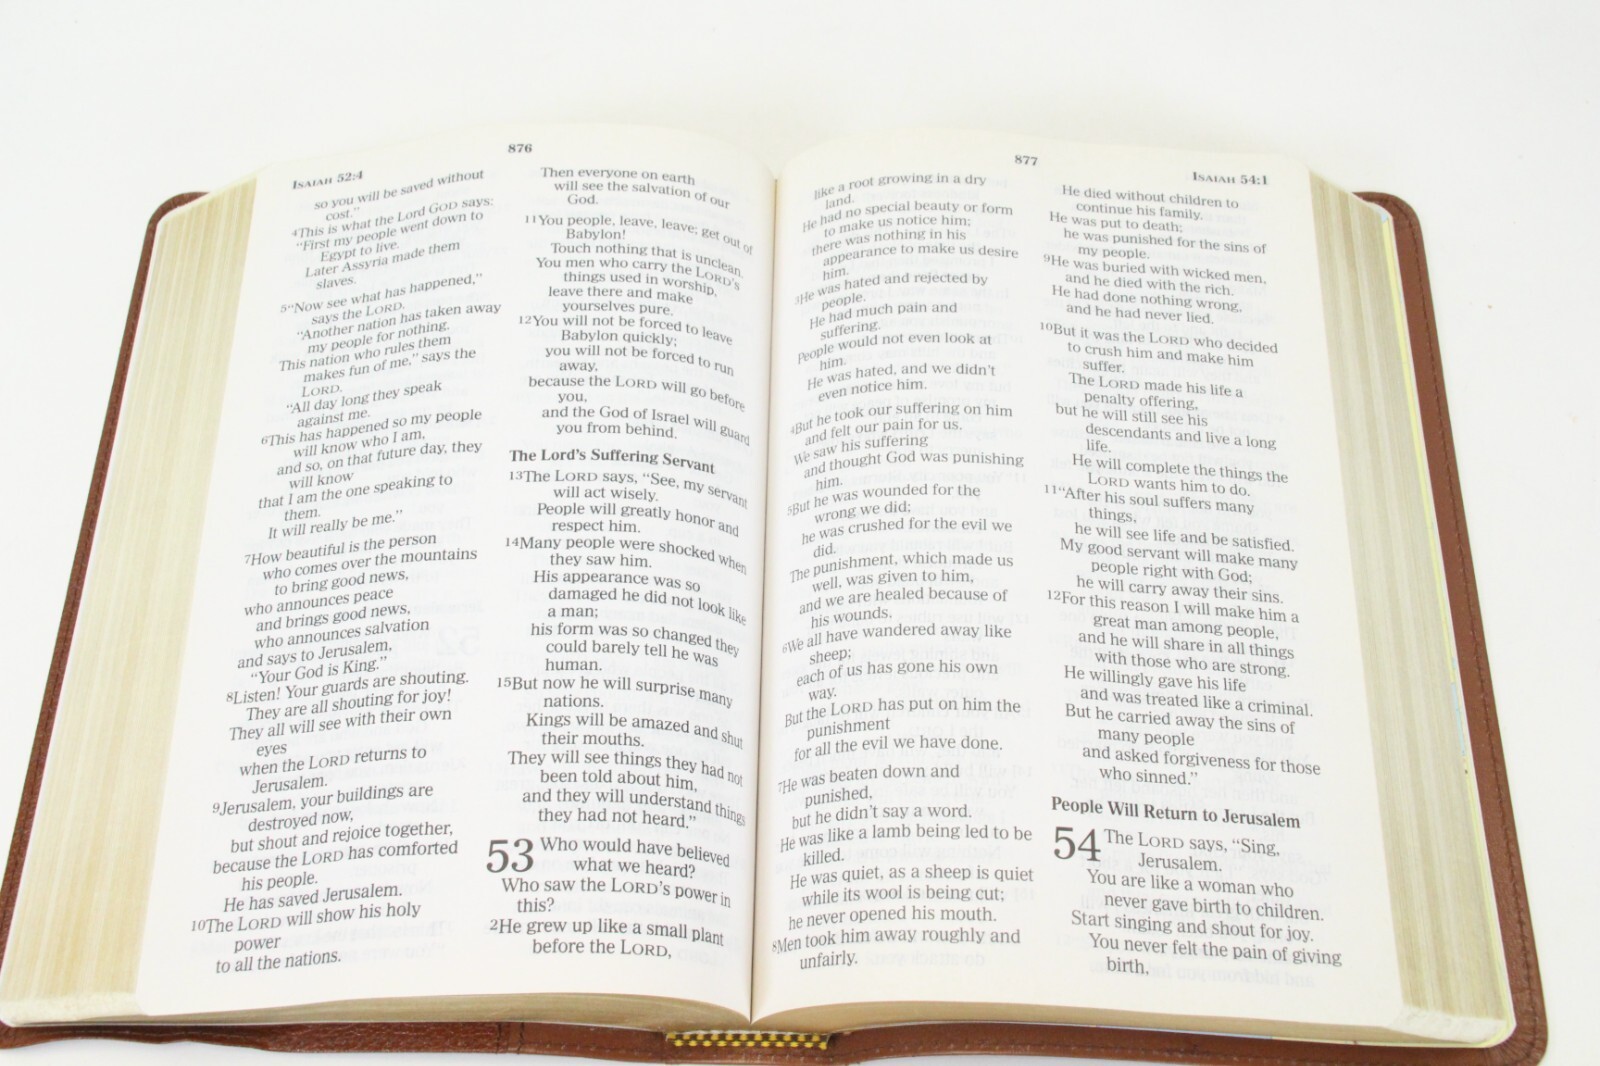 876
ISAIAH 52:4
so you will be saved without
cost.”
4This is what the Lord GOD says:
“First my people went down to
Egypt to live.
Later Assyria made them
slaves.
5“Now see what has happened,”
says the LORD.
“Another nation has taken away
my people for nothing.
This nation who rules them
makes fun of me,” says the
LORD.
“All day long they speak
against me.
6This has happened so my people
will know who I am,
and so, on that future day, they
will know
that I am the one speaking to
them.
It will really be me.”
7How beautiful is the person
who comes over the mountains
to bring good news,
who announces peace
and brings good news,
who announces salvation
and says to Jerusalem,
“Your God is King.”
8Listen! Your guards are shouting.
They are all shouting for joy!
They all will see with their own
eyes
when the LORD returns to
Jerusalem.
9Jerusalem, your buildings are
destroyed now,
but shout and rejoice together,
because the LORD has comforted
his people.
He has saved Jerusalem.
10The LORD will show his holy
power
to all the nations.
Then everyone on earth
will see the salvation of our
God.
11You people, leave, leave; get out of
Babylon!
Touch nothing that is unclean.
You men who carry the LORD’s
things used in worship,
leave there and make
yourselves pure.
12You will not be forced to leave
Babylon quickly;
you will not be forced to run
away,
because the LORD will go before
you,
and the God of Israel will guard
you from behind.
The Lord’s Suffering Servant
13The LORD says, “See, my servant
will act wisely.
People will greatly honor and
respect him.
14Many people were shocked when
they saw him.
His appearance was so
damaged he did not look like
a man;
his form was so changed they
could barely tell he was
human.
15But now he will surprise many
nations.
Kings will be amazed and shut
their mouths.
They will see things they had not
been told about him,
and they will understand things
they had not heard.”
53 Who would have believed
what we heard?
Who saw the LORD’s power in
this?
2He grew up like a small plant
before the LORD,
877
ISAIAH 54:1
like a root growing in a dry
land.
He had no special beauty or form
to make us notice him;
there was nothing in his
appearance to make us desire
him.
3He was hated and rejected by
people.
He had much pain and
suffering.
People would not even look at
him.
He was hated, and we didn’t
even notice him.
4But he took our suffering on him
and felt our pain for us.
We saw his suffering
and thought God was punishing
him.
5But he was wounded for the
wrong we did;
he was crushed for the evil we
did.
The punishment, which made us
well, was given to him,
and we are healed because of
his wounds.
6We all have wandered away like
sheep;
each of us has gone his own
way.
But the LORD has put on him the
punishment
for all the evil we have done.
7He was beaten down and
punished,
but he didn’t say a word.
He was like a lamb being led to be
killed.
He was quiet, as a sheep is quiet
while its wool is being cut;
he never opened his mouth.
8Men took him away roughly and
unfairly.
He died without children to
continue his family.
He was put to death;
he was punished for the sins of
my people.
9He was buried with wicked men,
and he died with the rich.
He had done nothing wrong,
and he had never lied.
10But it was the LORD who decided
to crush him and make him
suffer.
The LORD made his life a
penalty offering,
but he will still see his
descendants and live a long
life.
He will complete the things the
LORD wants him to do.
11“After his soul suffers many
things,
he will see life and be satisfied.
My good servant will make many
people right with God;
he will carry away their sins.
12For this reason I will make him a
great man among people,
and he will share in all things
with those who are strong.
He willingly gave his life
and was treated like a criminal.
But he carried away the sins of
many people
and asked forgiveness for those
who sinned.”
People Will Return to Jerusalem
54 The LORD says, “Sing,
Jerusalem.
You are like a woman who
never gave birth to children.
Start singing and shout for joy.
You never felt the pain of giving
birth,